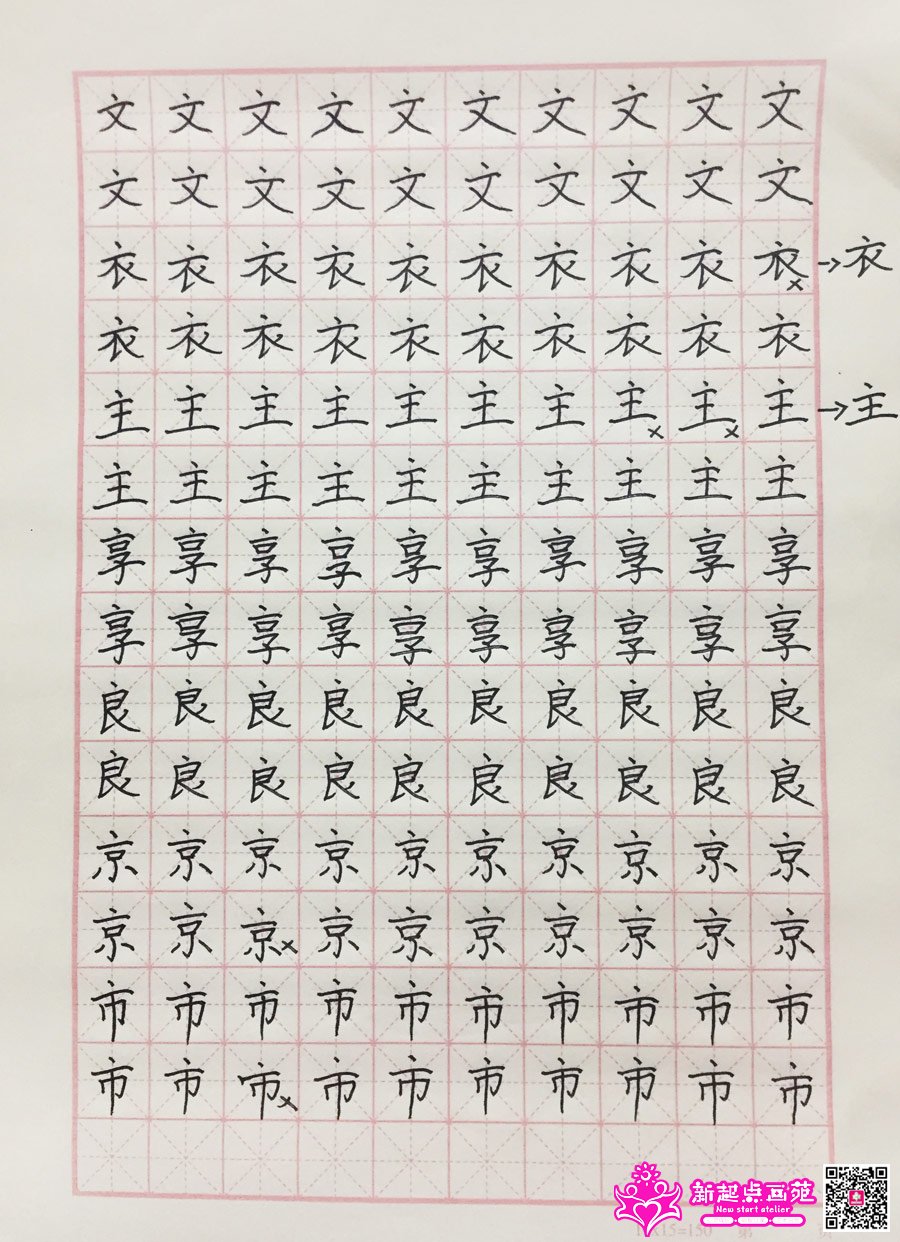 文文文文文文文文文文
文文文文文文文文文文
衣衣衣衣衣衣衣衣衣衣×→衣
衣衣衣衣衣衣衣衣衣衣
主主主主主主主主×主×主→主
主主主主主主主主主主
享享享享享享享享享享
享享享享享享享享享享
良良良良良良良良良良
良良良良良良良良良良
京京京京京京京京京京
京京京×京京京京京京京
市市市市市市市市市市
市市市×市市市市市市市
新起点画苑
New start atelier
15=150 第 页